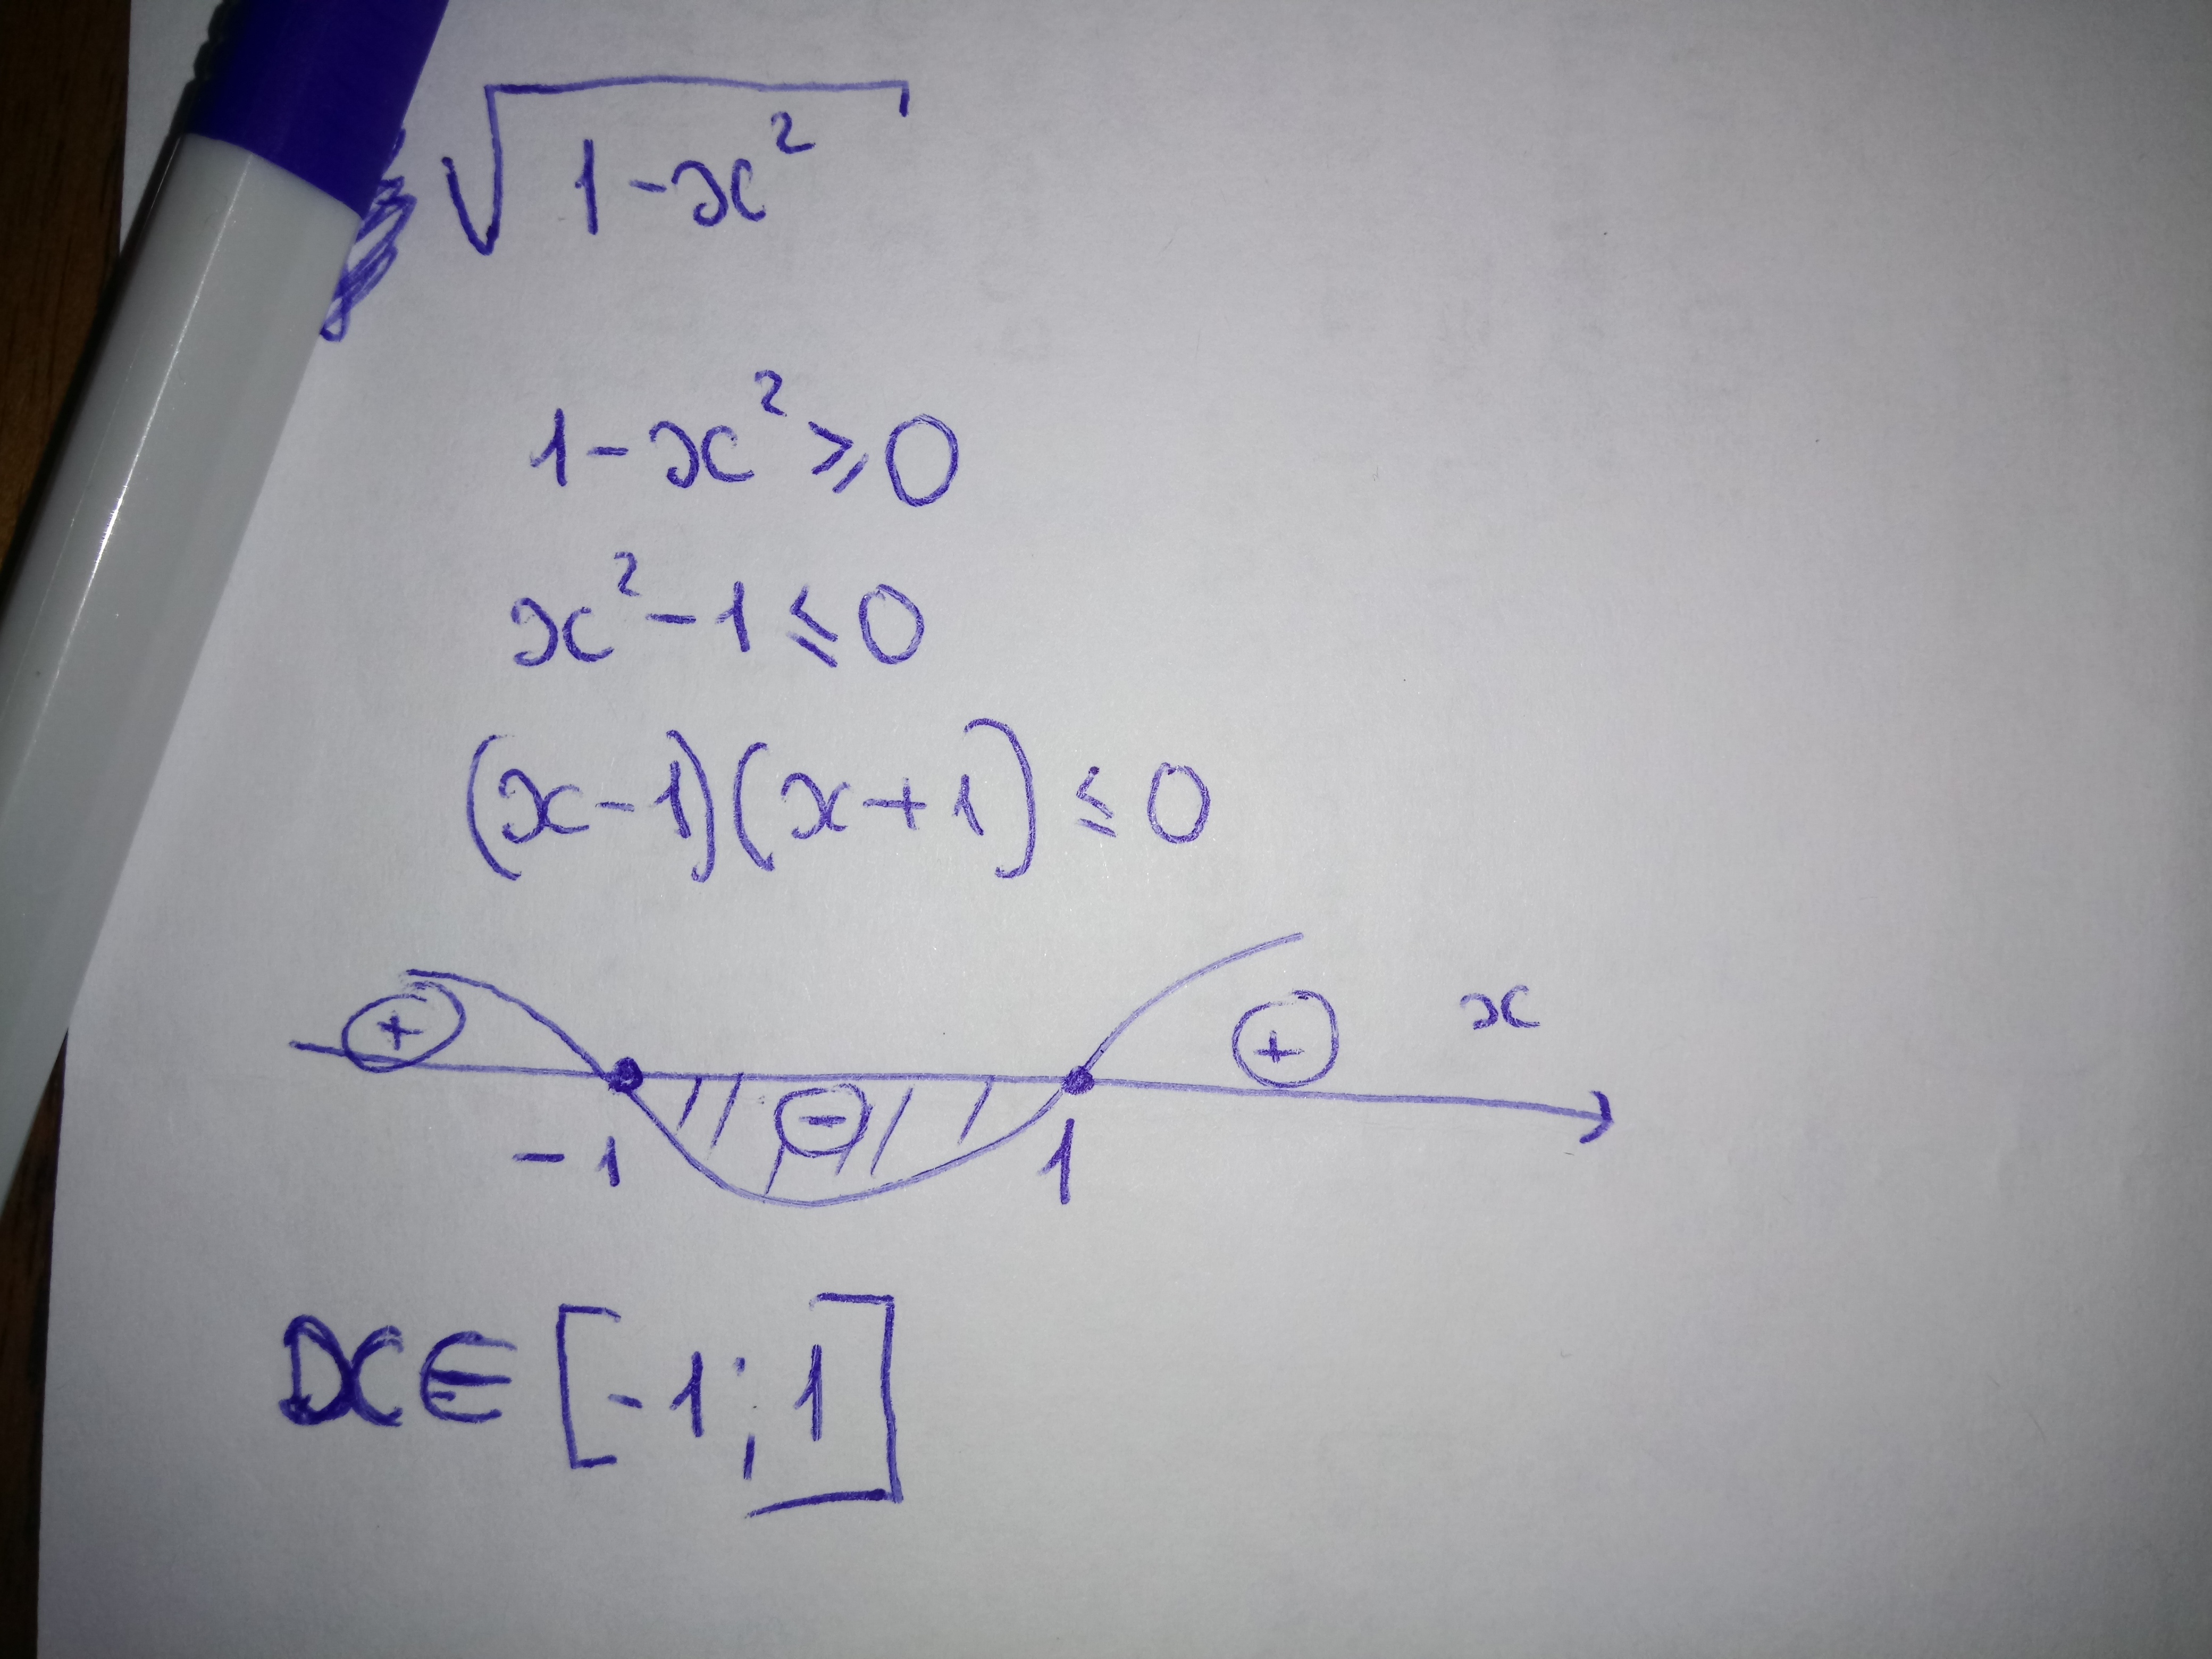 √(1-x²)
1-x² ⩾ 0
x²-1 ⩽ 0
(x-1)(x+1) ⩽ 0
+ - + x
-1 1
x∈[-1;1]